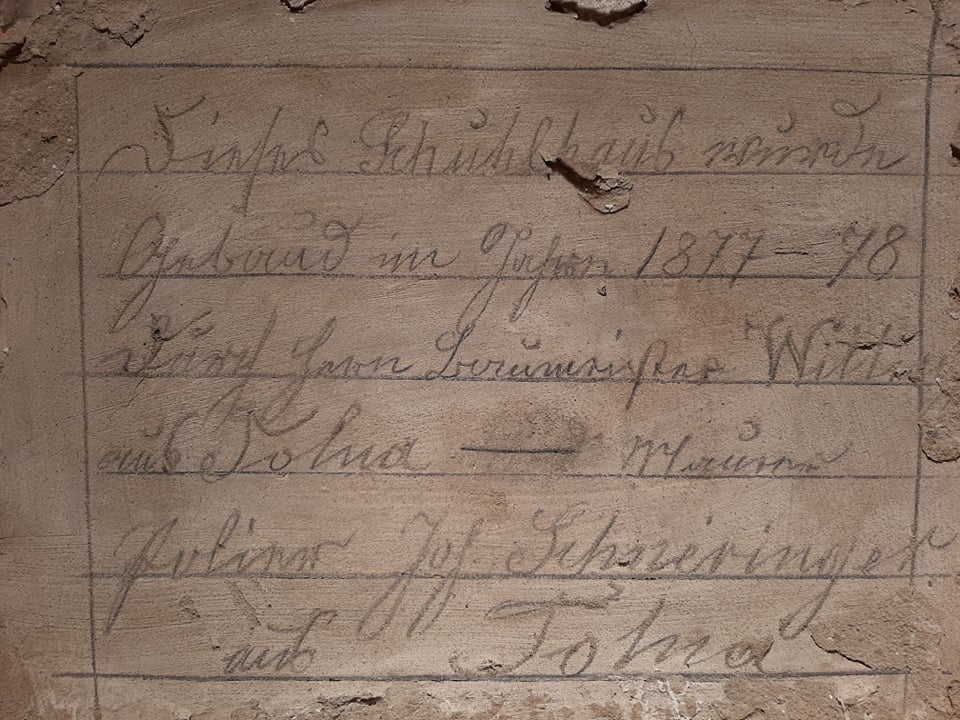 Dieses Schuhlhaus wurde
Gebaud im Jahren 1877–78
Durch Herrn Baumeister
aus Tolna — Maurer
Polierr Joh Schneiringer
aus Tolna